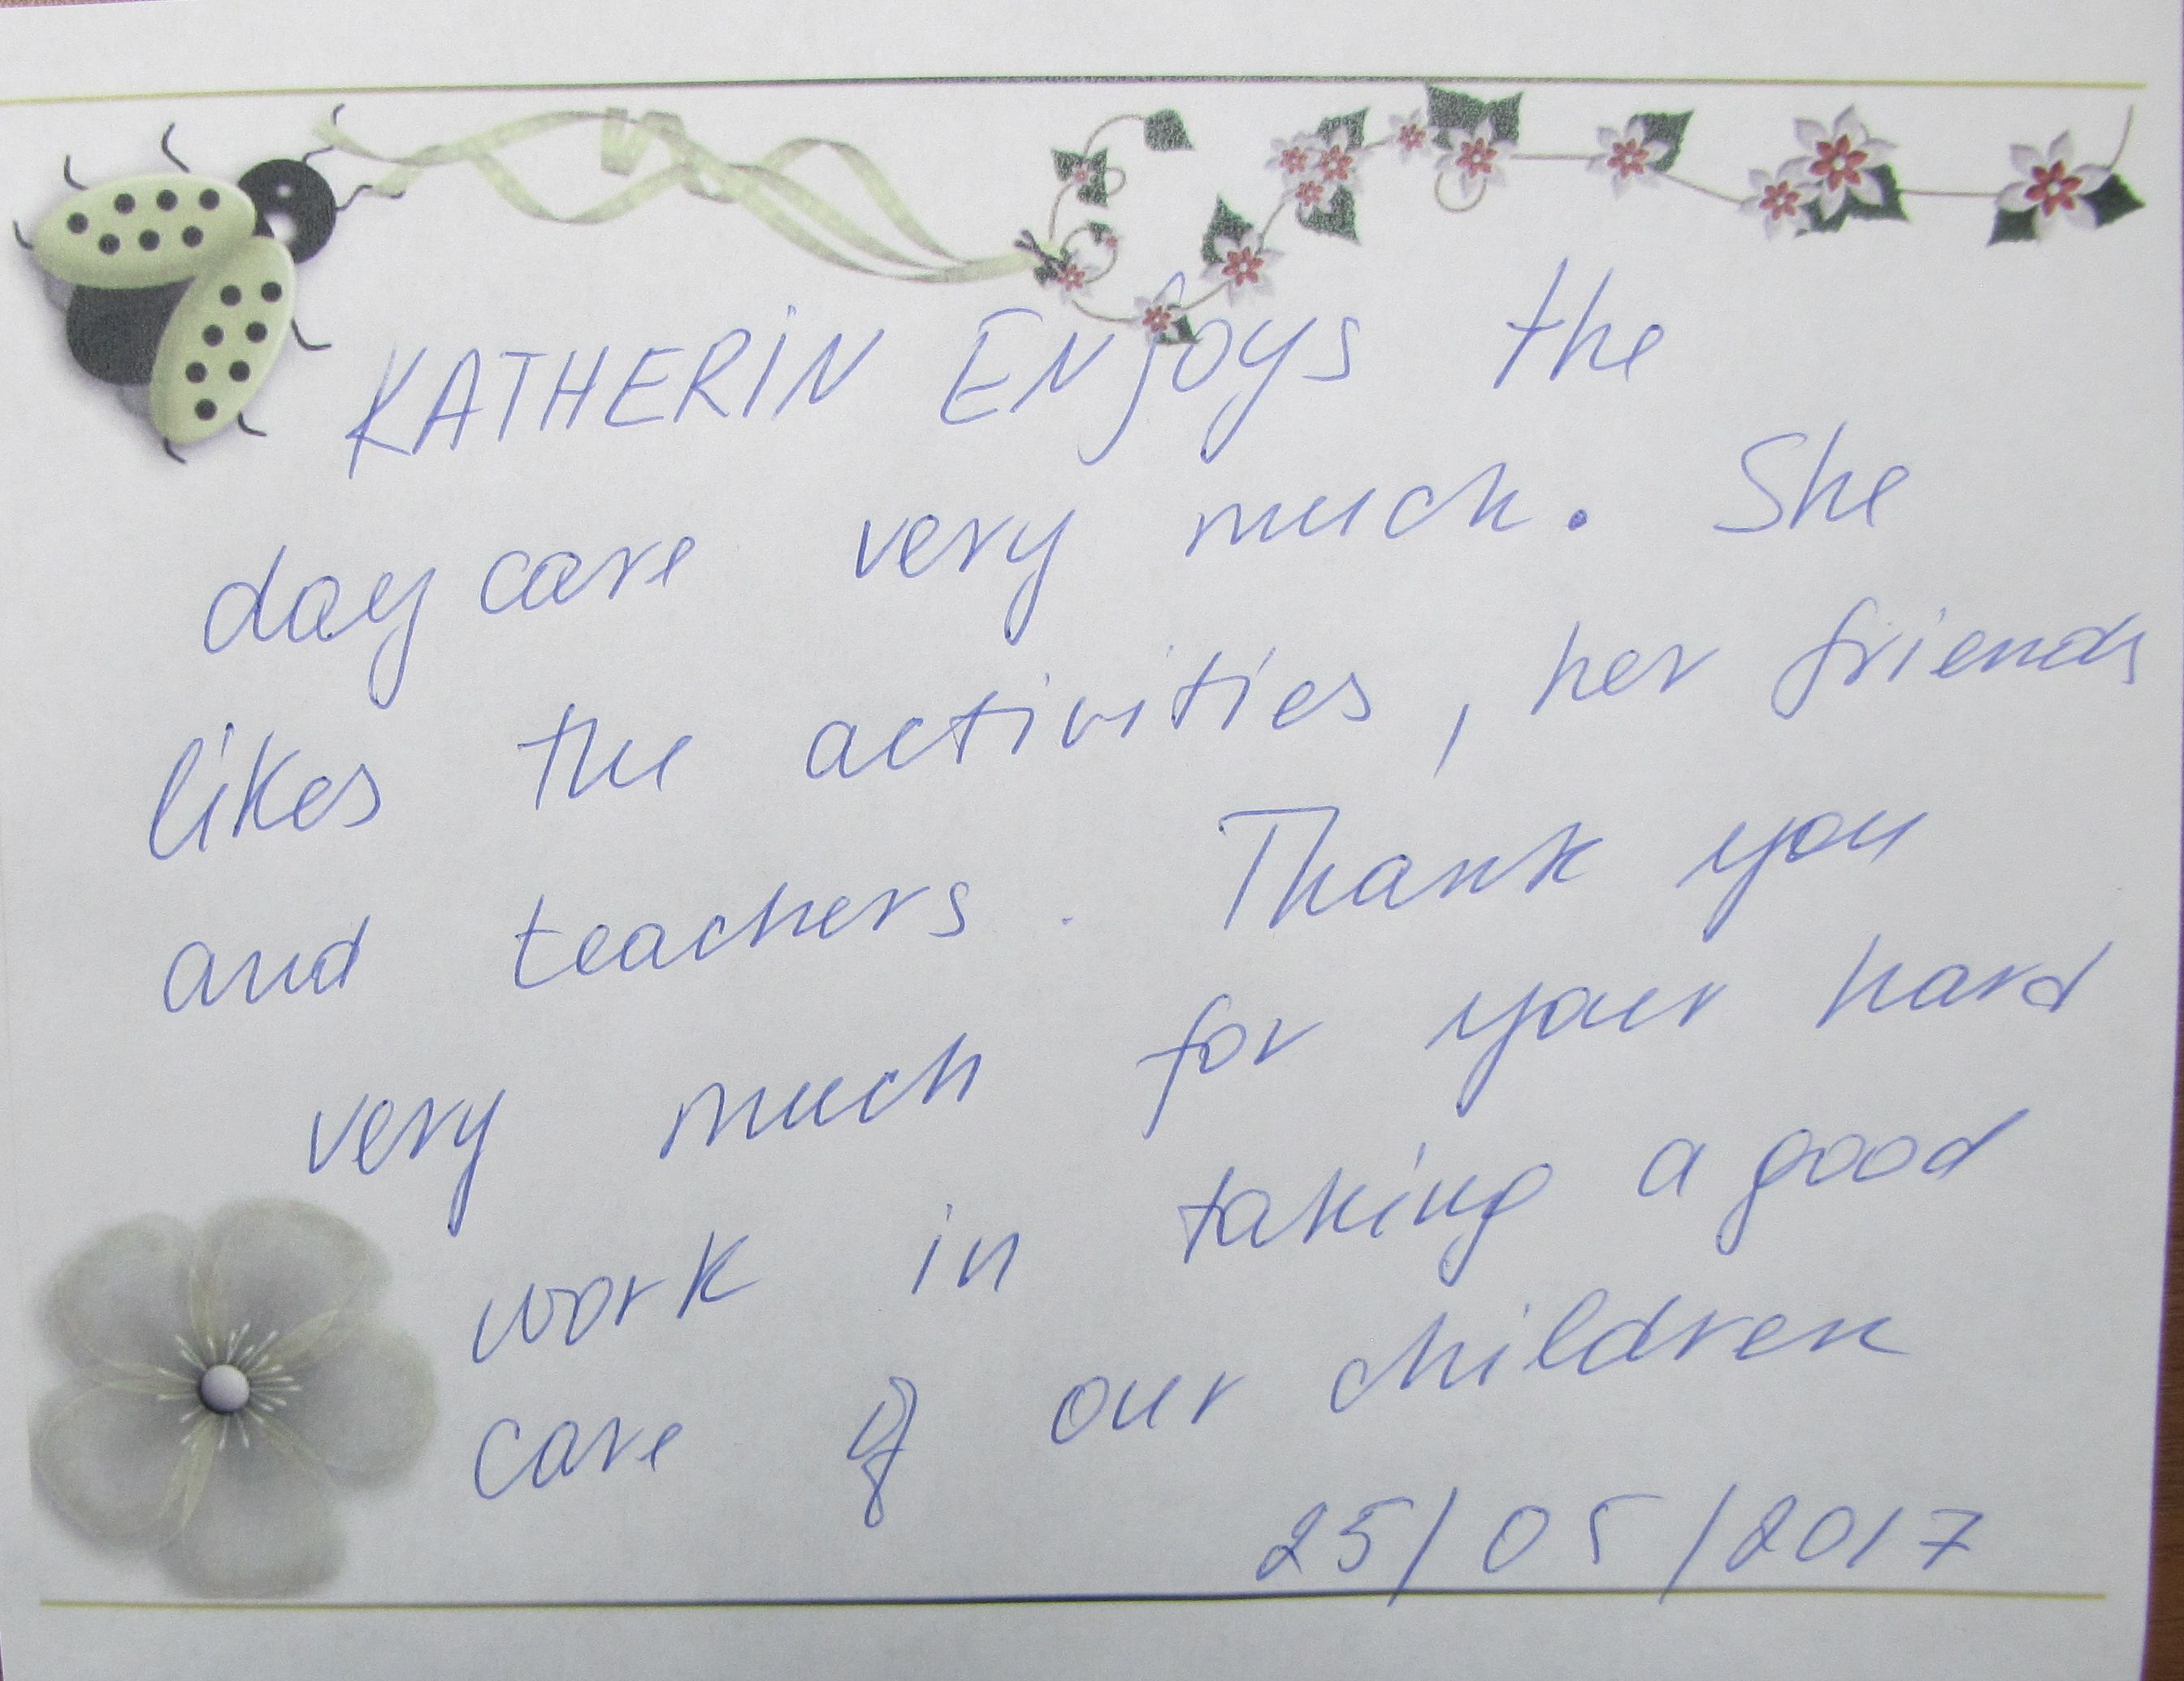 KATHERIN ENjoys the
day care very much. She
likes the activities, her friends
and teachers. Thank you
very much for your hard
work in taking a good
care of our children
25/05/2017